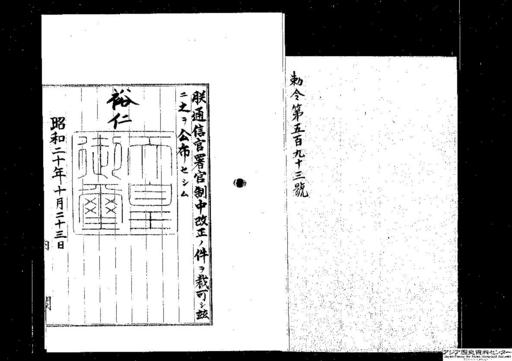 勅令第五百九十三號
朕通信官署官制中改正ノ件ヲ裁可シ茲
ニ之ヲ公布セシム
裕仁
天皇
御璽
昭和二十年十月二十三日
内閣
アジア歴史資料センター